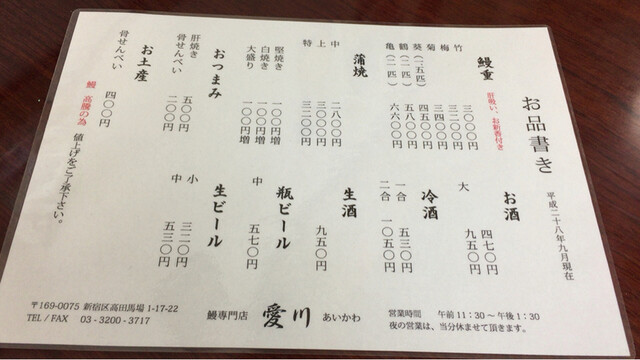 お品書き
平成二十八年九月現在
鰻重 肝吸い、お新香付き
竹 三〇〇〇円
梅 三二〇〇円
菊 三四〇〇円
葵(一.五匹) 四五〇〇円
鶴(二匹) 五八〇〇円
亀(二匹) 六六〇〇円
蒲焼
中 二八〇〇円
上 三〇〇〇円
特 三二〇〇円
堅焼き 一〇〇円増
白焼き 一〇〇円増
大盛り 一〇〇円増
おつまみ
肝焼き 五〇〇円
骨せんべい 二〇〇円
お土産
骨せんべい 四〇〇円
鰻 高騰の為 値上げをご了承下さい。
お酒
四七〇円
大 九五〇円
冷酒
一合 五三〇円
二合 一〇五〇円
生酒
九五〇円
瓶ビール
中 五七〇円
生ビール
小 三二〇円
中 五三〇円
〒169-0075 新宿区高田馬場 1-17-22
TEL / FAX 03 - 3200 - 3717
鰻専門店 愛川 あいかわ
営業時間 午前 11:30 ~ 午後 1:30
夜の営業は、当分休ませて頂きます。